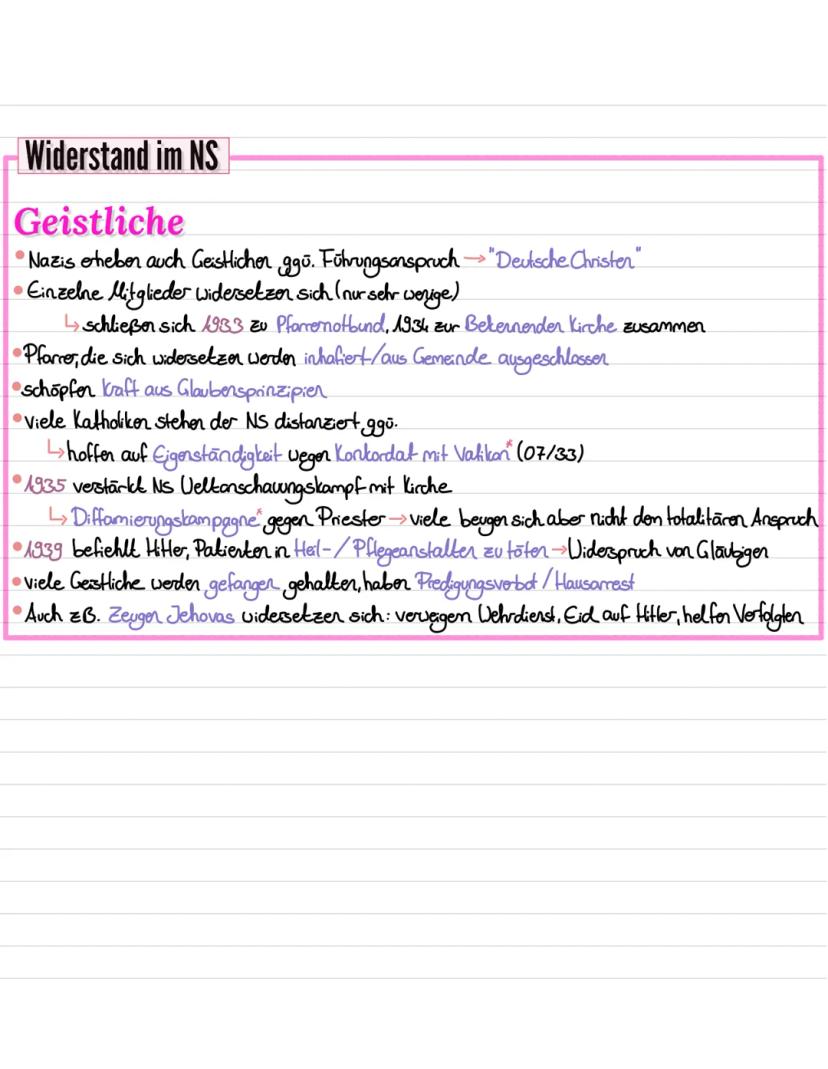 Widerstand im NS
Geistliche
• Nazis erheben auch Geistlichen ggü. Führungsanspruch → "Deutsche Christen"
• Einzelne Mitglieder widersetzen sich (nur sehr wenige)
↳ schließen sich 1933 zu Pfarrernotbund, 1934 zur Bekennenden Kirche zusammen
• Pfarrer, die sich widersetzen werden inhafiert/aus Gemeinde ausgeschlossen
• schöpfen Kraft aus Glaubensprinzipien
• viele Katholiken stehen der NS distanziert ggü.
↳ hoffen auf Eigenständigkeit wegen Konkordat mit Vatikan* (07/33)
• 1935 verstärkt NS Weltanschauungskampf mit Kirche
↳ Diffamierungskampagne* gegen Priester → viele beugen sich aber nicht den totalitären Anspruch
• 1939 befiehlt Hitler, Patienten in Heil-/Pflegeanstalten zu töten → Widerspruch von Gläubigen
• viele Geistliche werden gefangen gehalten, haben Predigungsverbot/Hausarrest
• Auch zB. Zeugen Jehovas widersetzen sich: verweigern Wehrdienst, Eid auf Hitler, helfen Verfolgten